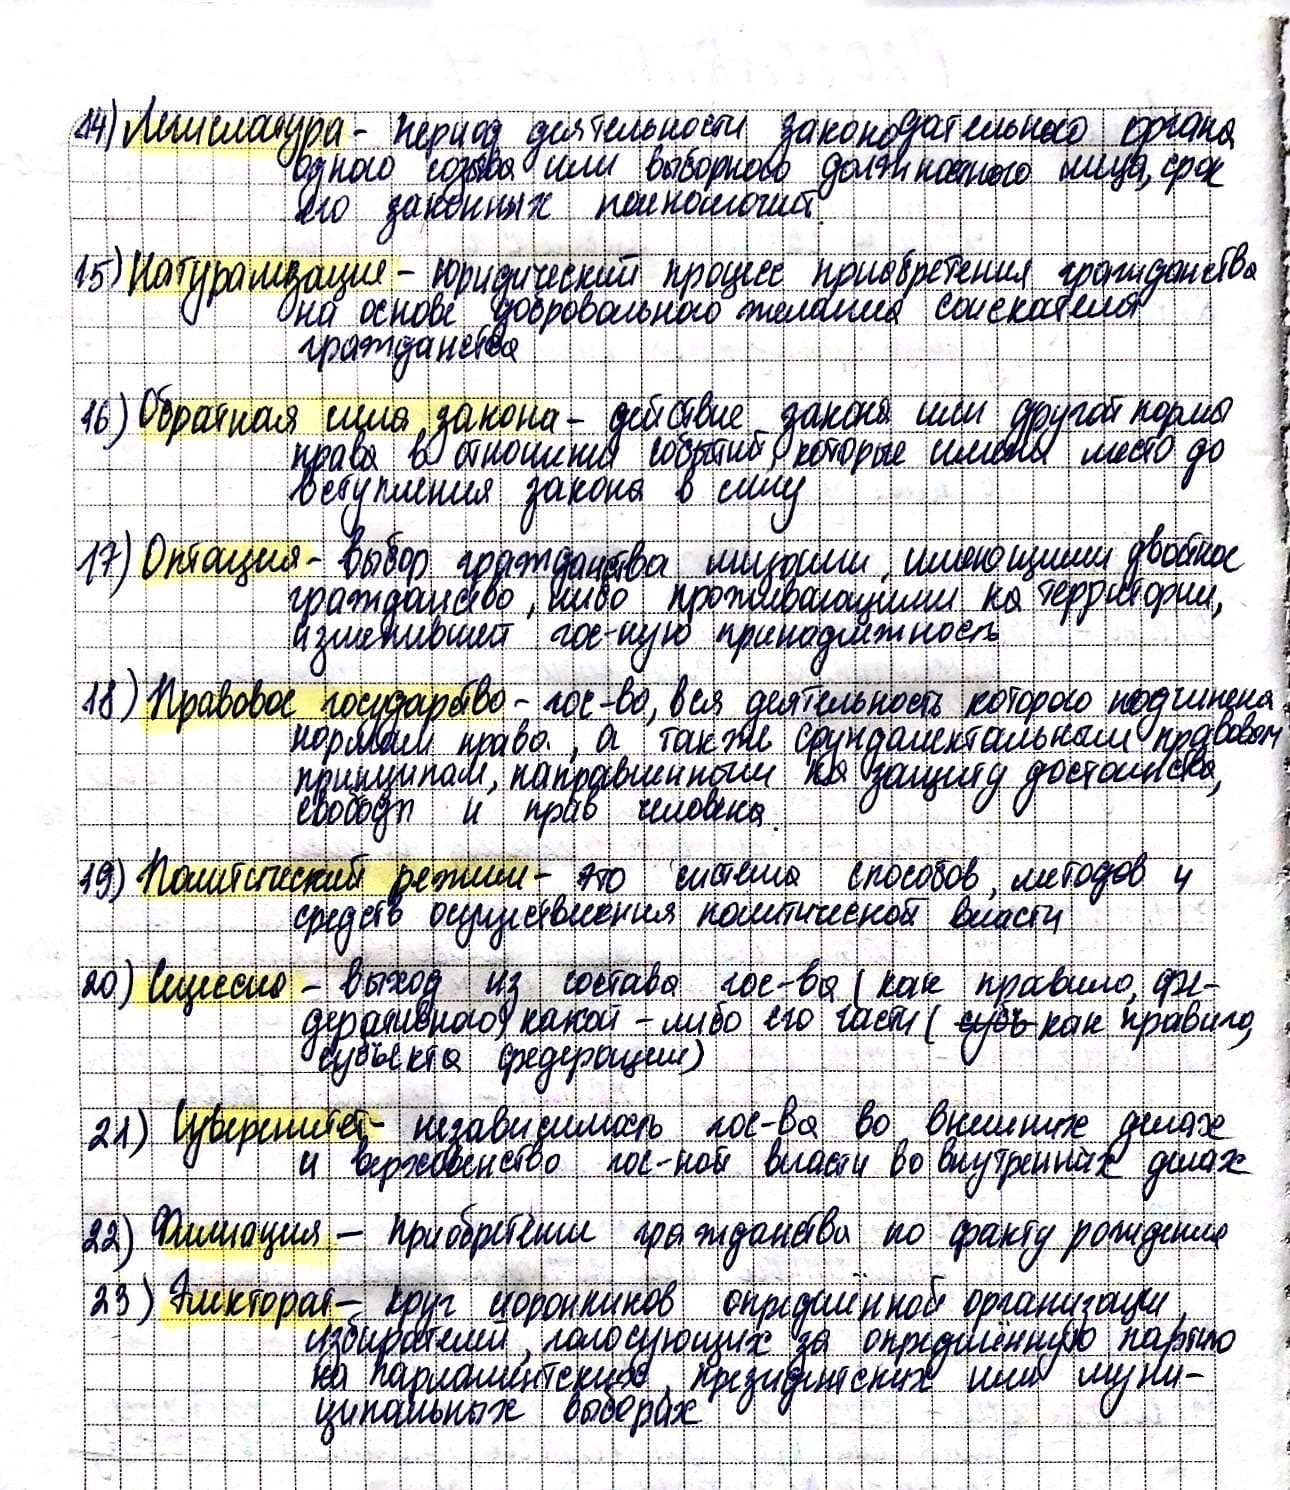 14) Легислатура - период деятельности законодательного органа
одного созыва или выборного должностного лица, срок
его законных полномочий.
15) Натурализация - юридический процесс приобретения гражданства
на основе добровольного желания соискателя
гражданства
16) Обратная сила закона - действие закона или другой нормы
права в отношении событий, которые имели место до
вступления закона в силу
17) Оптация - выбор гражданства лицами, имеющими двойное
гражданство, либо проживающими на территории,
изменившей гос-ную принадлежность
18) Правовое государство - гос-во, вся деятельность которого подчинена
нормам права, а также фундаментальным правовым
принципам, направленным на защиту достоинства,
свободы и прав человека.
19) Политический режим - это система способов, методов и
средств осуществления политической власти
20) Сецессия - выход из состава гос-ва (как правило, фе-
деративного) какой-либо его части (субъ как правило,
субъекта федерации)
21) Суверенитет - независимость гос-ва во внешних делах
и верховенство гос-ной власти во внутренних делах
22) Филиация - приобретение гражданства по факту рождения
23) Электорат - круг сторонников определённой организации,
избирателей, голосующих за определённую партию
на парламентских, президентских или муни-
ципальных выборах